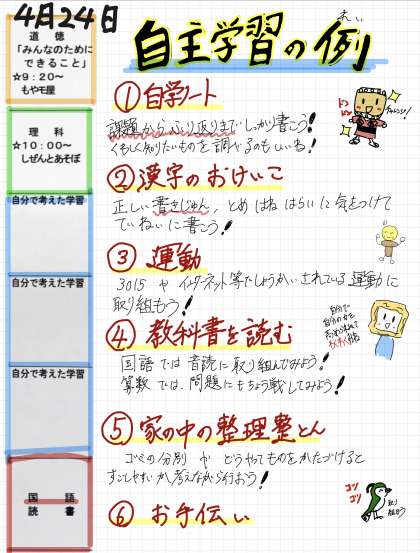 4月24日
道 徳
「みんなのために
できること」
☆9：20～
もやモ屋
理 科
☆10：00～
しぜんとあそぼ
自分で考えた学習
自分で考えた学習
自分で考えた学習
国 語
読 書
れい
自主学習の例
①自学ノート
課題からふり返りまでしっかり書こう!
くわしく知りたいものを調べるのもいいね!
②漢字のおけいこ
正しい書きじゅん、とめはねはらいに気をつけて
ていねいに書こう!
③ 運動
3015やインターネット等でしょうかいされている運動に
取り組もう!
④ 教科書を読む
国語では音読に取り組んでみよう!
算数では、問題にもちょう戦してみよう!
自分で
⑤家の中の整理整とん
ゴミの分別やどうやってものをかたづけると
すごしやすいか、考えながら行おう!
コツ
コツ
取り
組もう
⑥ お手伝い